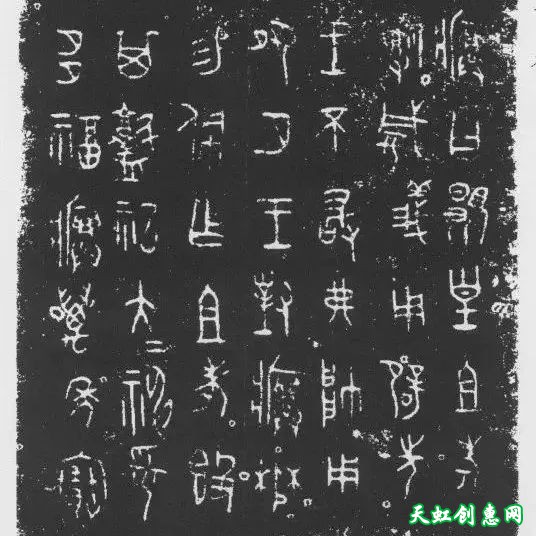 㾓曰覭皇且考
𤔲威義用辟先
王不敢弗帥用
夙夕王對㾓楙
易佩乍且考𣪘
其䵼祀大=神=妥
多福㾓萬年寶
天虹创惠网